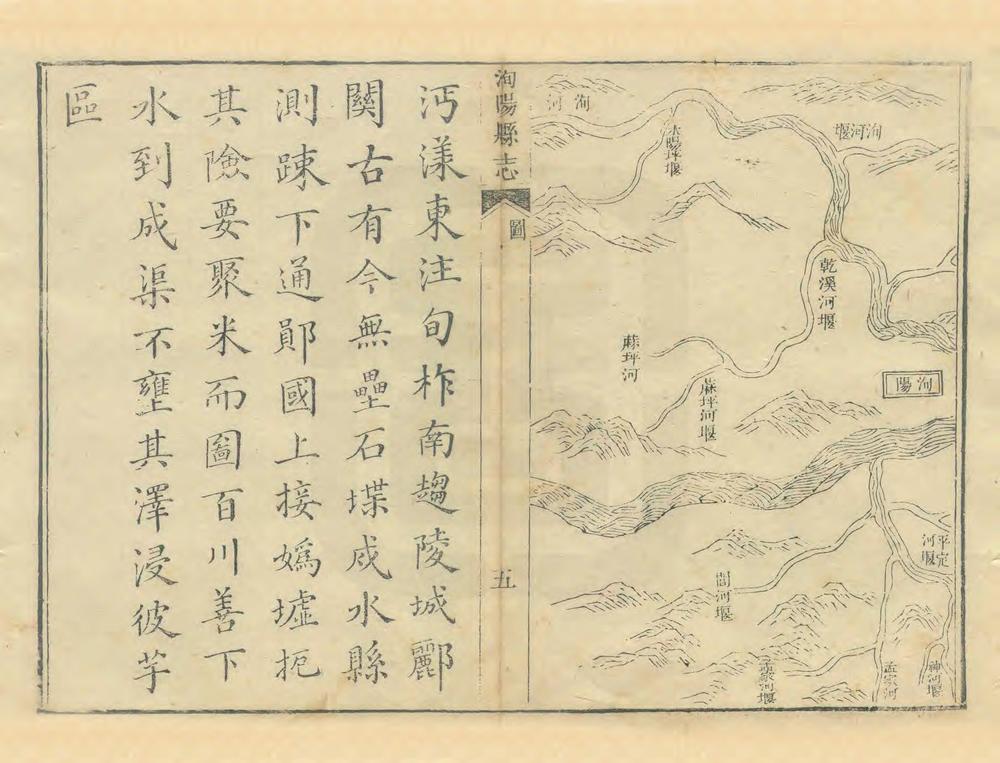 洵河
洵河堰
乾溪河堰
蔴坪河
蔴坪河堰
洵陽
平定河堰
閭河堰
神河堰
孟家河
孟家河堰
洵陽縣志
圖
五
沔漾東注旬柞南趨陵城酈
關古有今無壘石堞戍水縣
測踈下通鄖國上接嬀墟扼
其險要聚米而圖百川善下
水到成渠不壅其澤浸彼芋
區